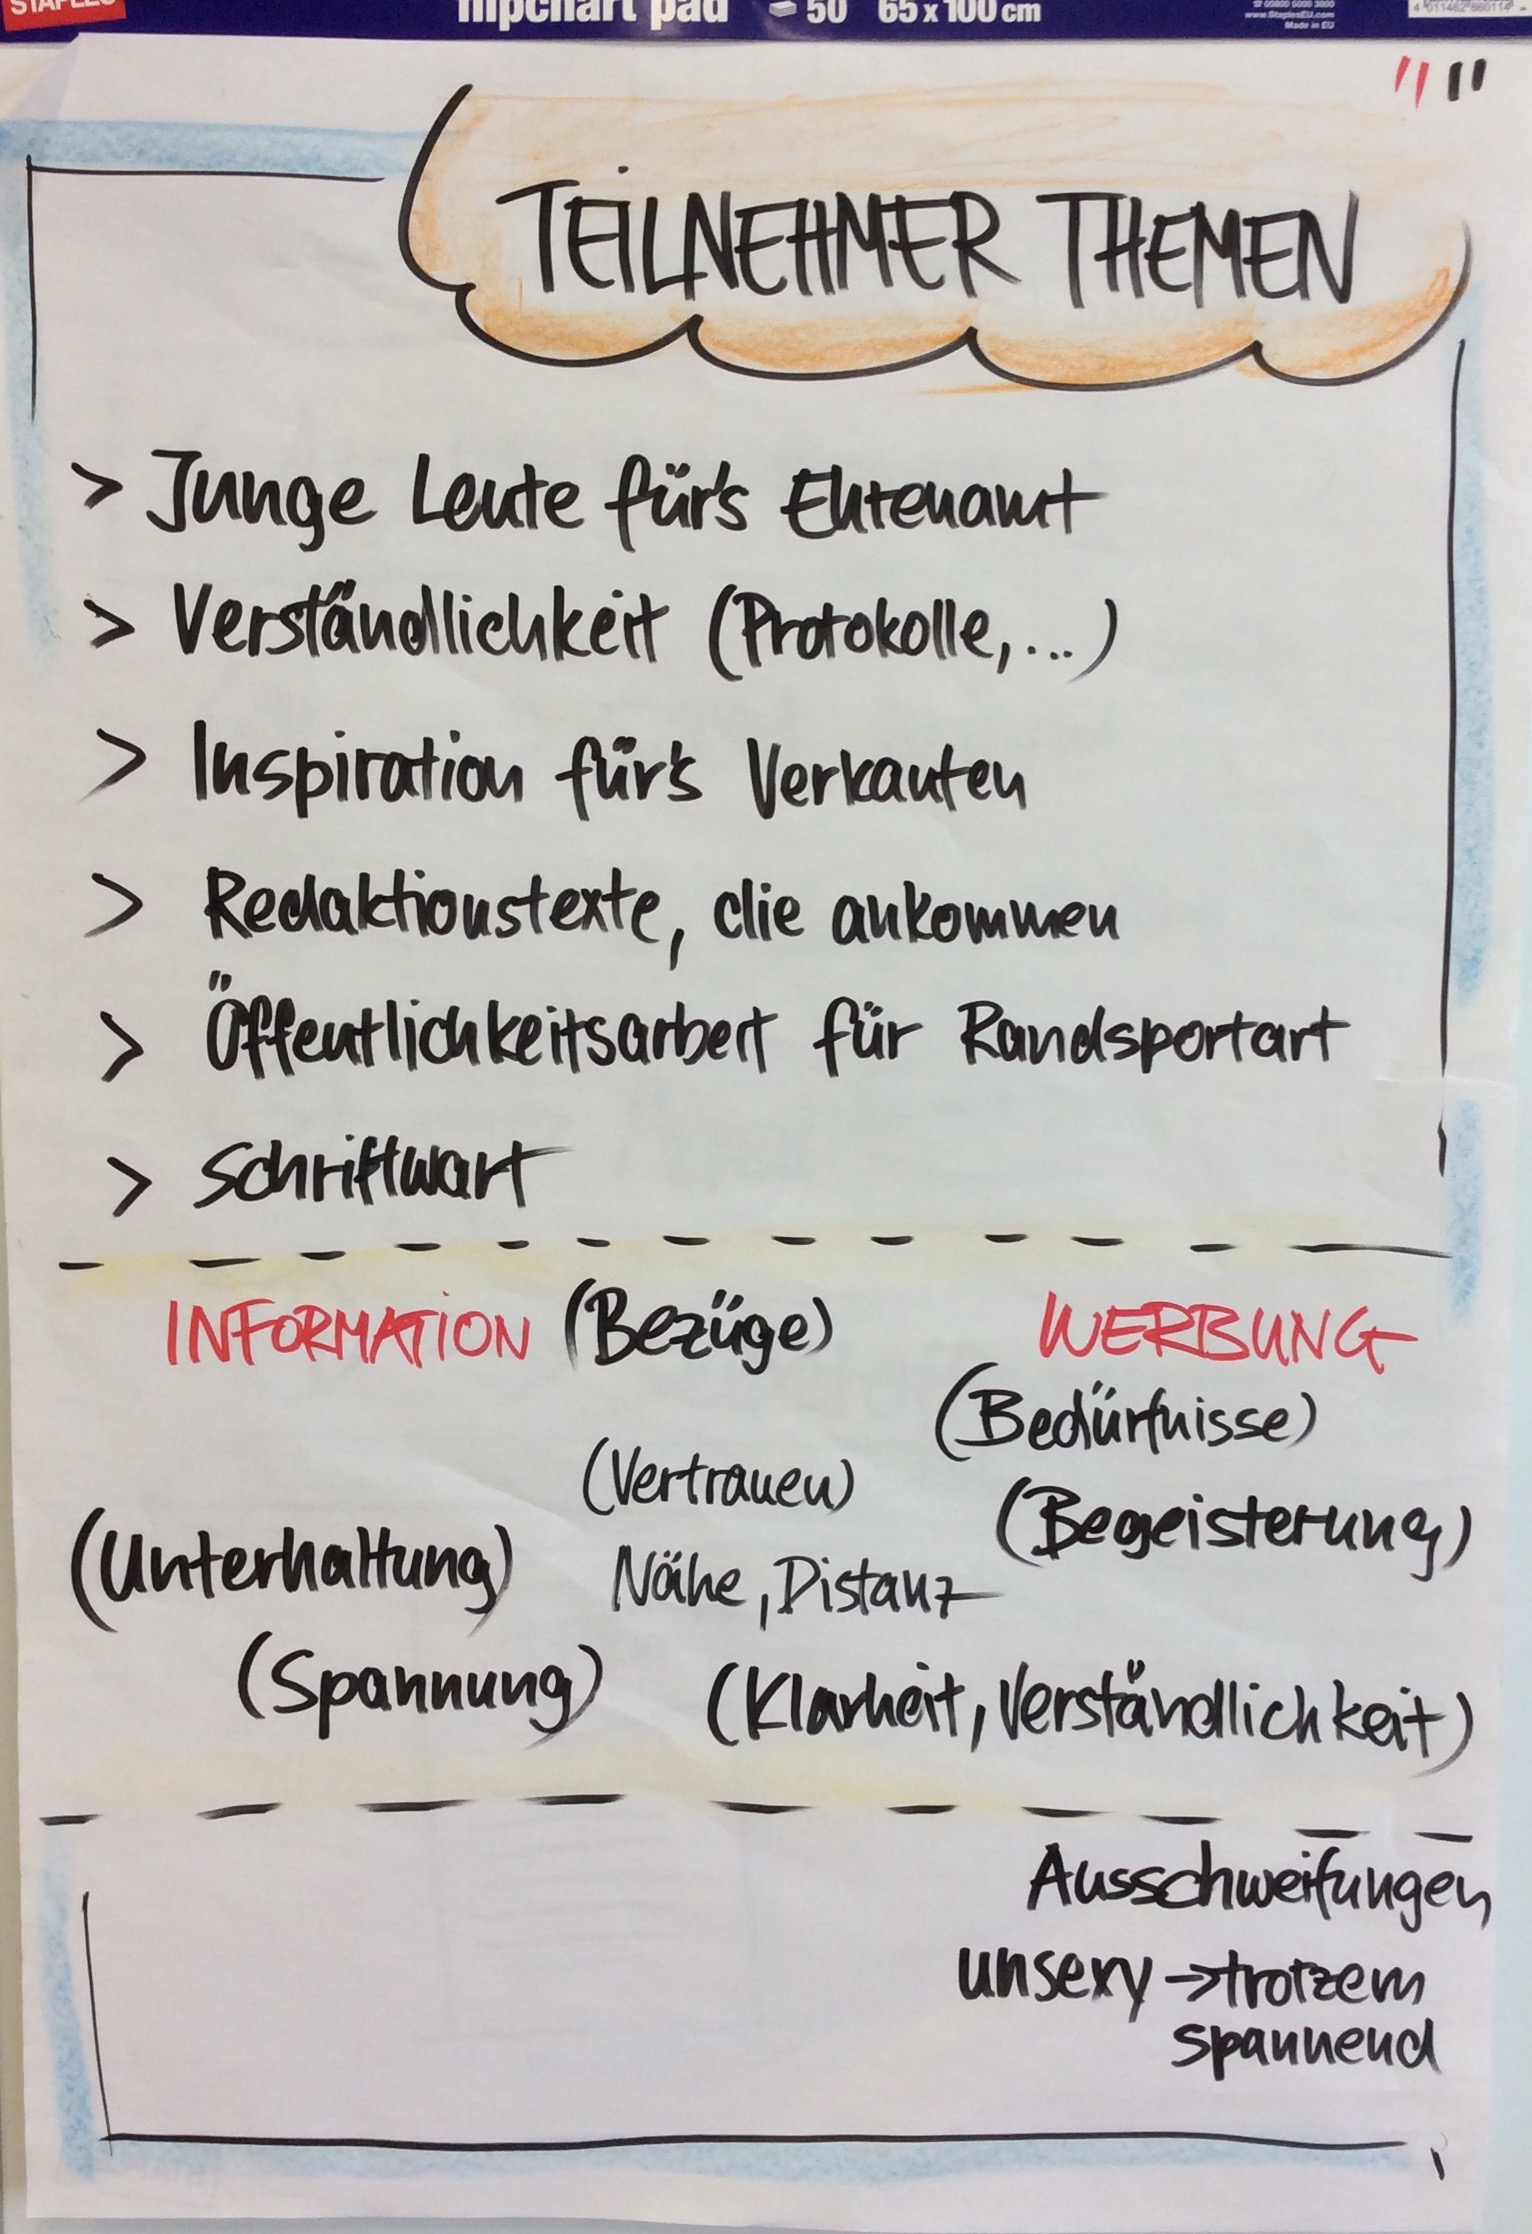 STAPLES
flipchart pad 50 65 x 100 cm
www.StaplesEU.com
Made in EU
TEILNEHMER THEMEN
> Junge Leute für's Ehrenamt
> Verständlichkeit (Protokolle, ...)
> Inspiration für's Verkaufen
> Redaktionstexte, die ankommen
> Öffentlichkeitsarbeit für Randsportart
> Schriftwart
INFORMATION (Bezüge) WERBUNG
(Bedürfnisse)
(Vertrauen) (Begeisterung)
(Unterhaltung) Nähe, Distanz
(Spannung) (Klarheit, Verständlichkeit)
Ausschweifungen
unsexy → trotzem
spannend